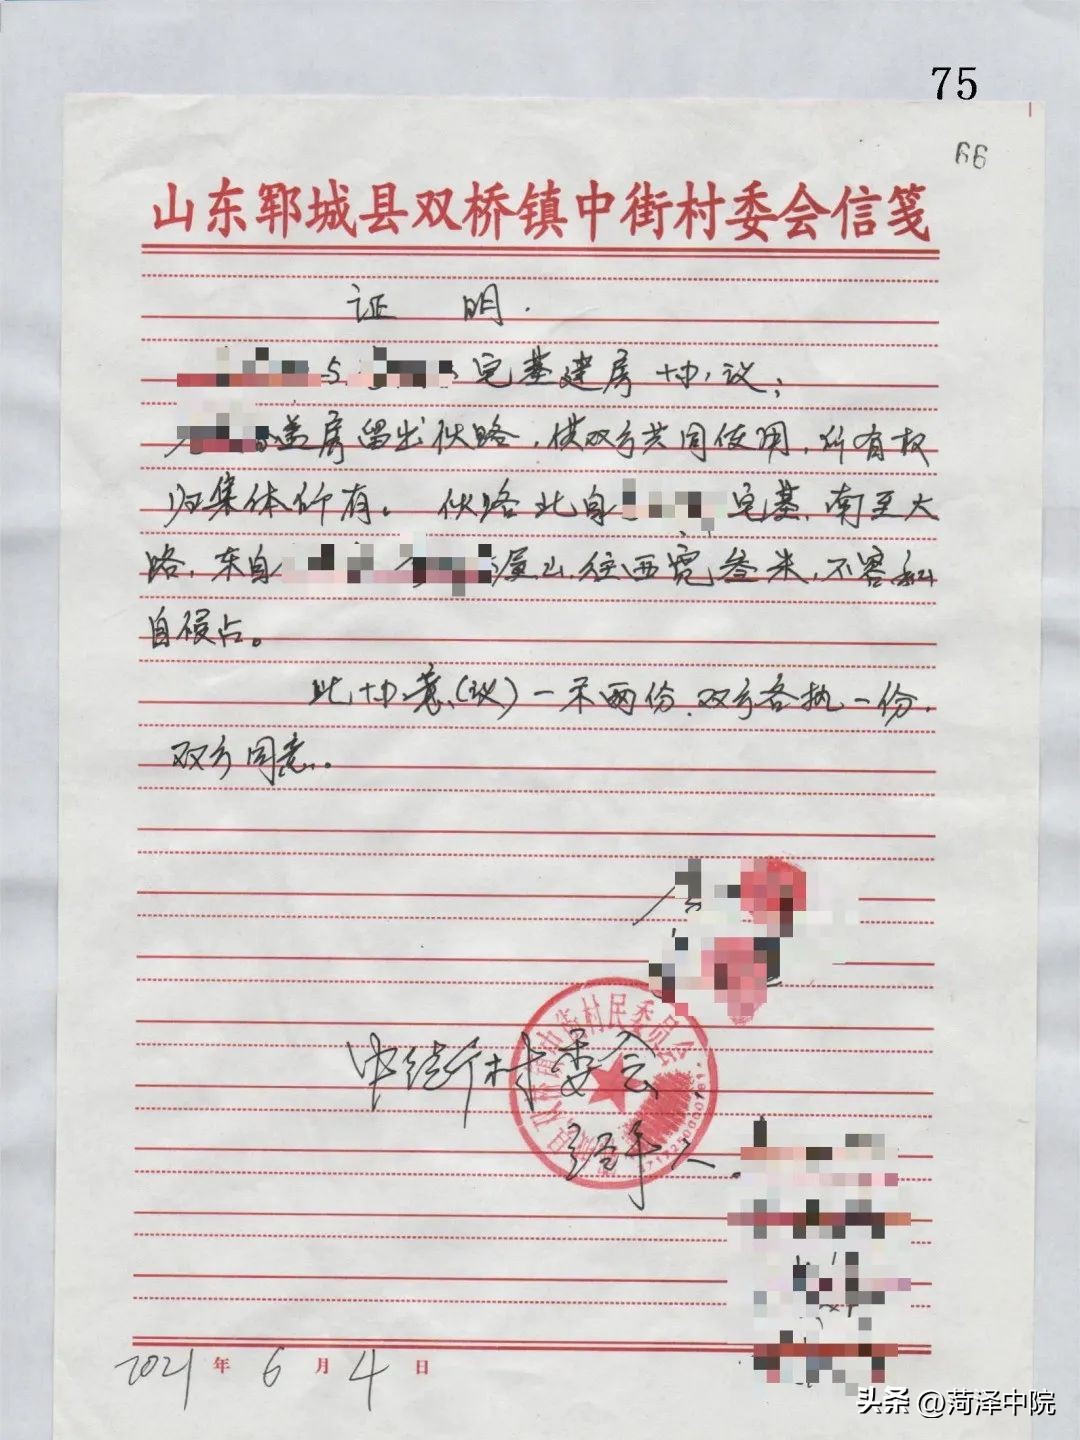 75
66
山东郓城县双桥镇中街村委会信笺
证 明.
与 宅基建房协议;
盖房留出伙路,供双方共同使用,所有权
归集体所有。伙路北自 宅基,南至大
路,东自 屋山往西宽叁米,不容私
自侵占。
此协意(议)一式两份,双方各执一份,
双方同意。
中街村委会
经手人.
2021年6月4日
头条 @菏泽中院